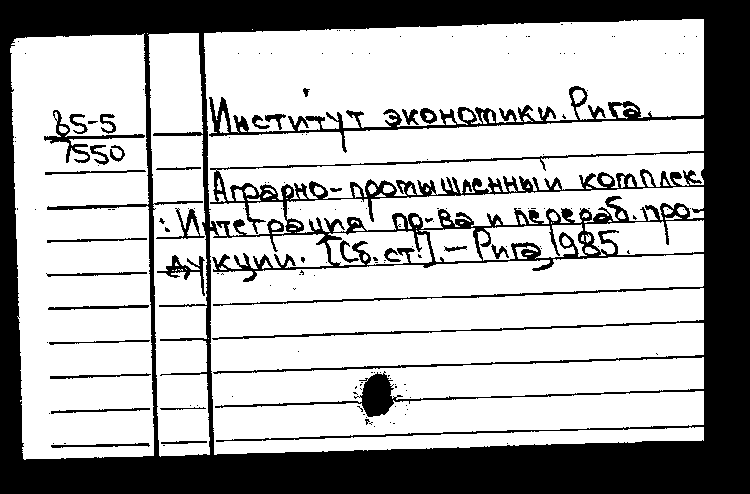 85-5
7550
Институт экономики. Рига.
Аграрно-промышленный комплекс
: Интеграция пр-ва и перераб. про-
дукции. [Сб. ст.]. — Рига, 1985.